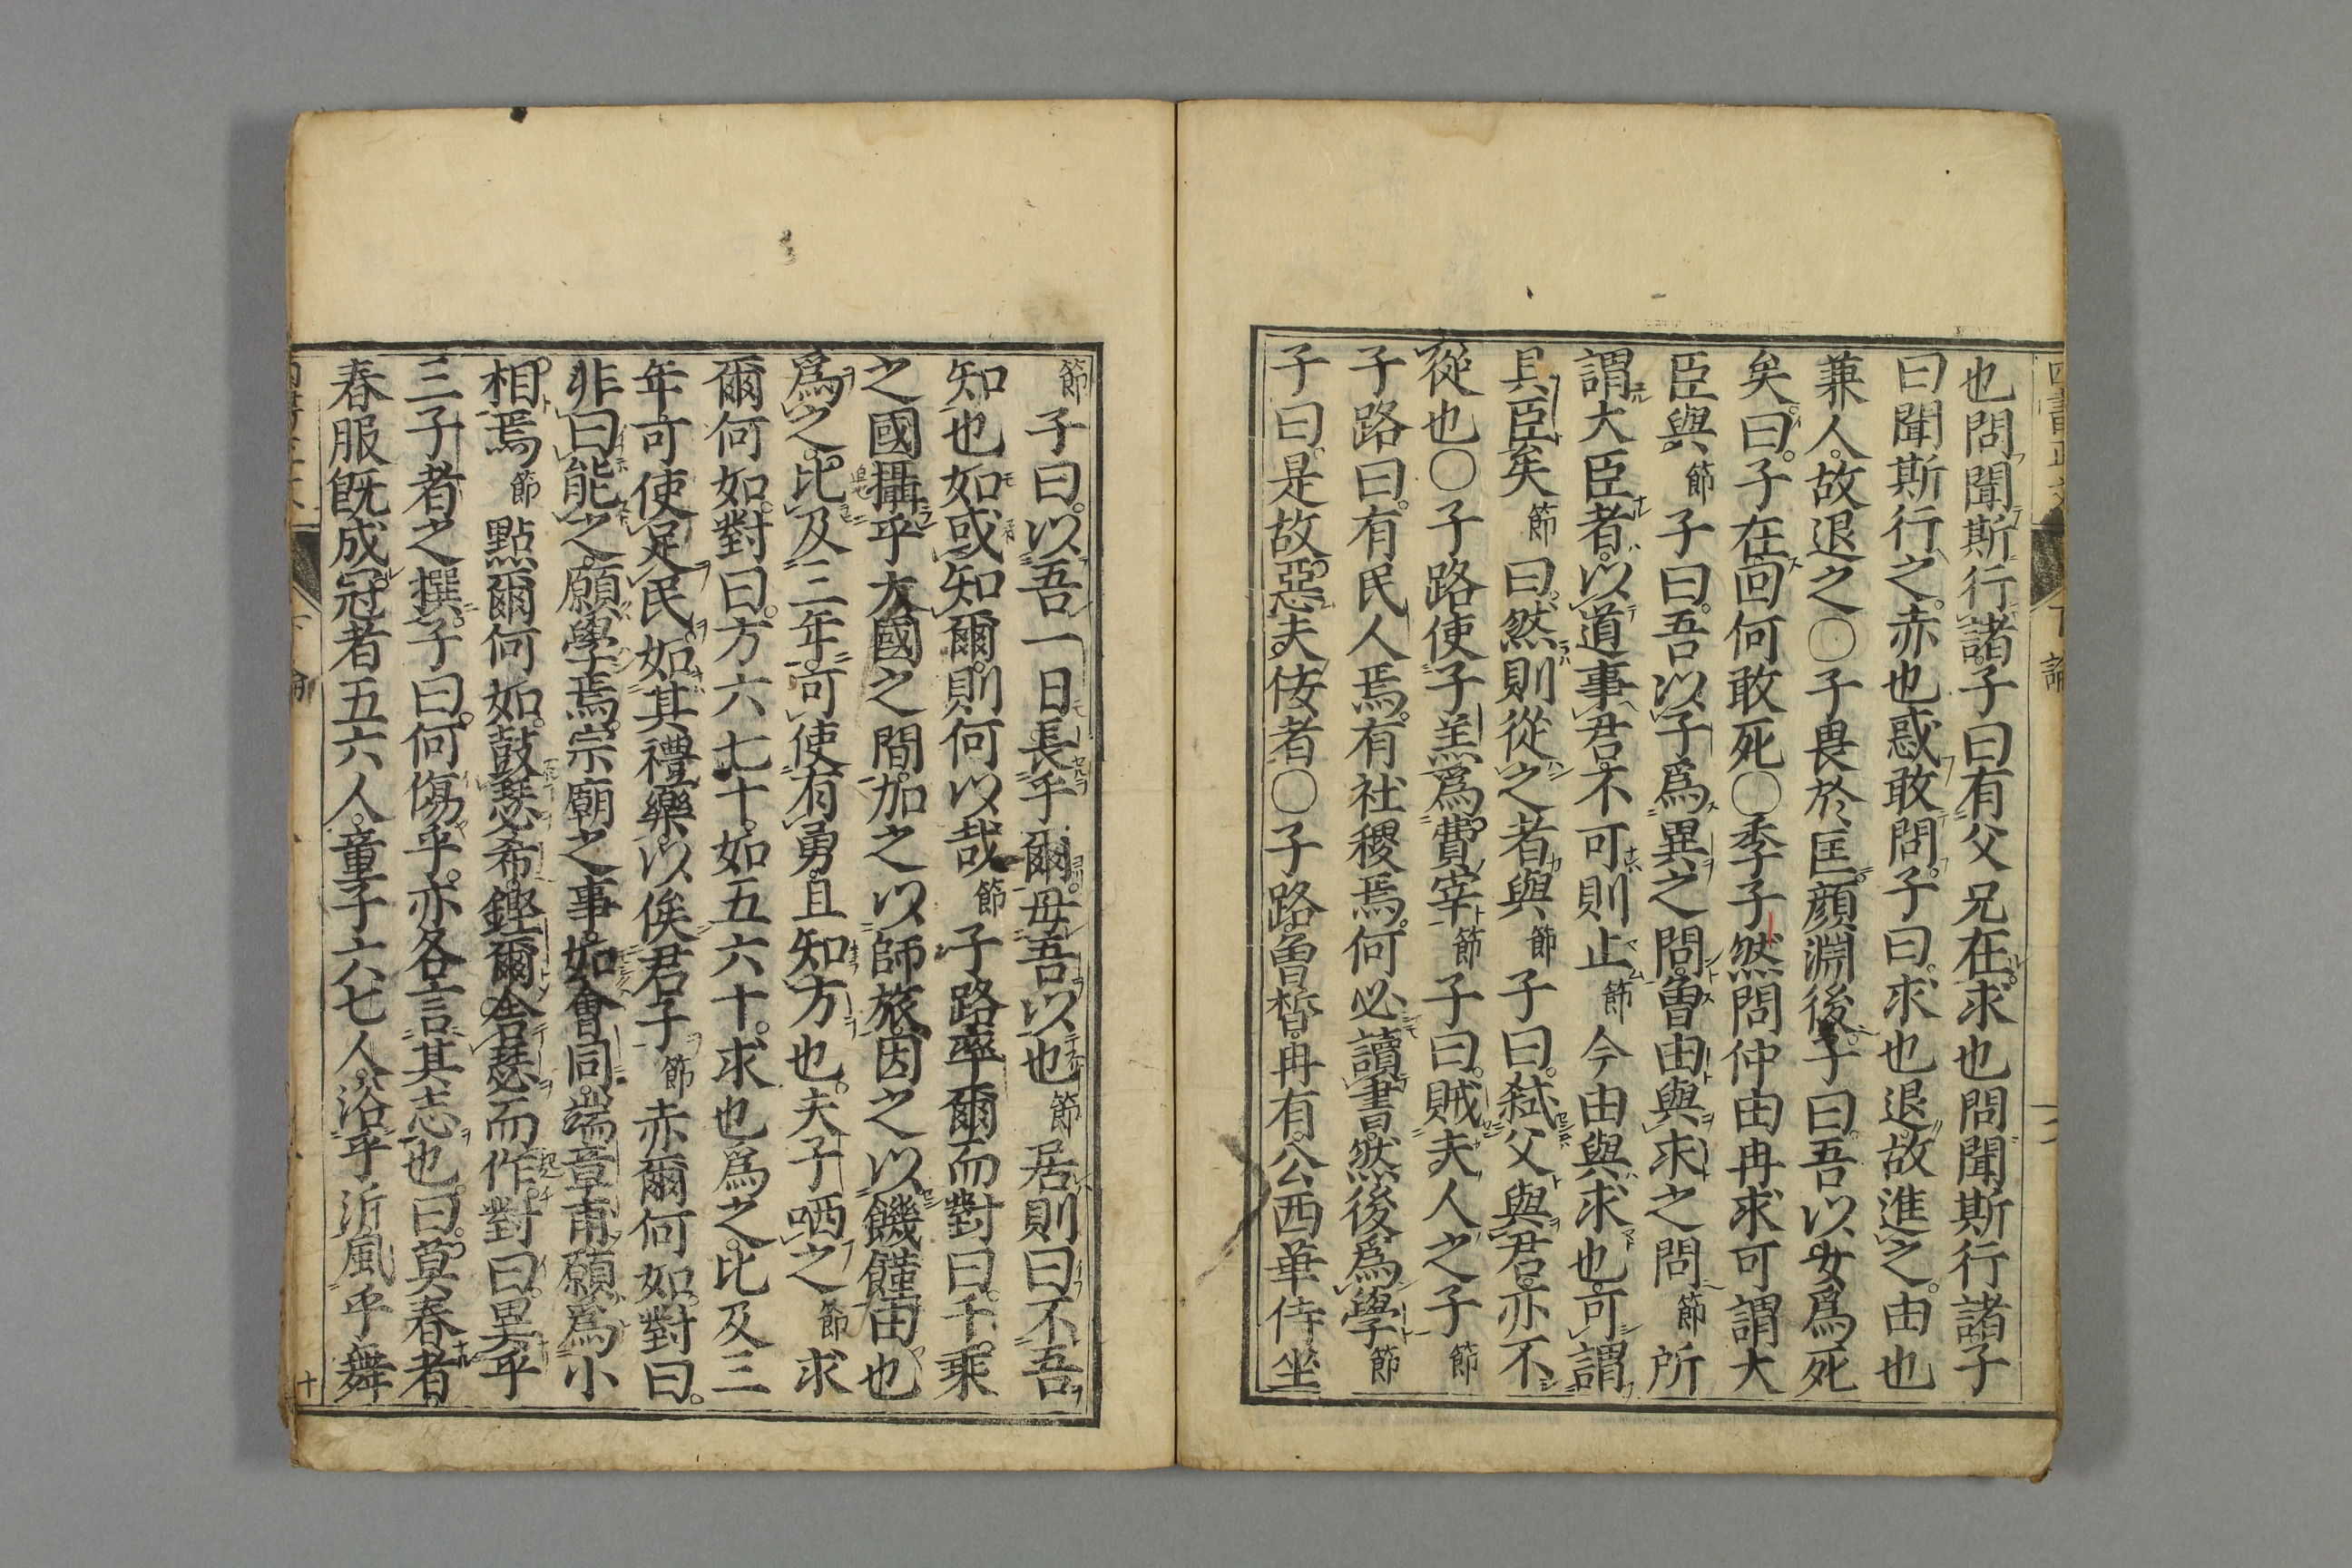 也問聞斯行諸子曰有父兄在求也問聞斯行諸子
曰聞斯行之赤也惑敢問子曰求也退故進之由也
兼人故退之〇子畏於匡顔淵後子曰吾以女爲死
矣曰子在回何敢死〇季子然問仲由冉求可謂大
臣與節子曰吾以子爲異之問曽由與求之問節所
謂大臣者以道事君不可則止節今由與求也可謂
具臣矣節曰然則從之者與節子曰弑父與君亦不
從也〇子路使子羔爲費宰節子曰賊夫人之子節
子路曰有民人焉有社稷焉何必讀書然後爲學節
子曰是故惡夫佞者〇子路曽皙冉有公西華侍坐
節子曰以吾一日長乎爾毋吾以也節居則曰不吾
知也如或知爾則何以哉節子路率爾而對曰千乘
之國攝乎大國之間加之以師旅因之以饑饉由也
爲之比及三年可使有勇且知方也夫子哂之節求
爾何如對曰方六七十如五六十求也爲之比及三
年可使足民如其禮樂以俟君子節赤爾何如對曰
非曰能之願學焉宗廟之事如會同端章甫願爲小
相焉節點爾何如鼓瑟希鏗爾舍瑟而作對曰異乎
三子者之撰子曰何傷乎亦各言其志也曰莫春者
春服既成冠者五六人童子六七人浴乎沂風乎舞
十